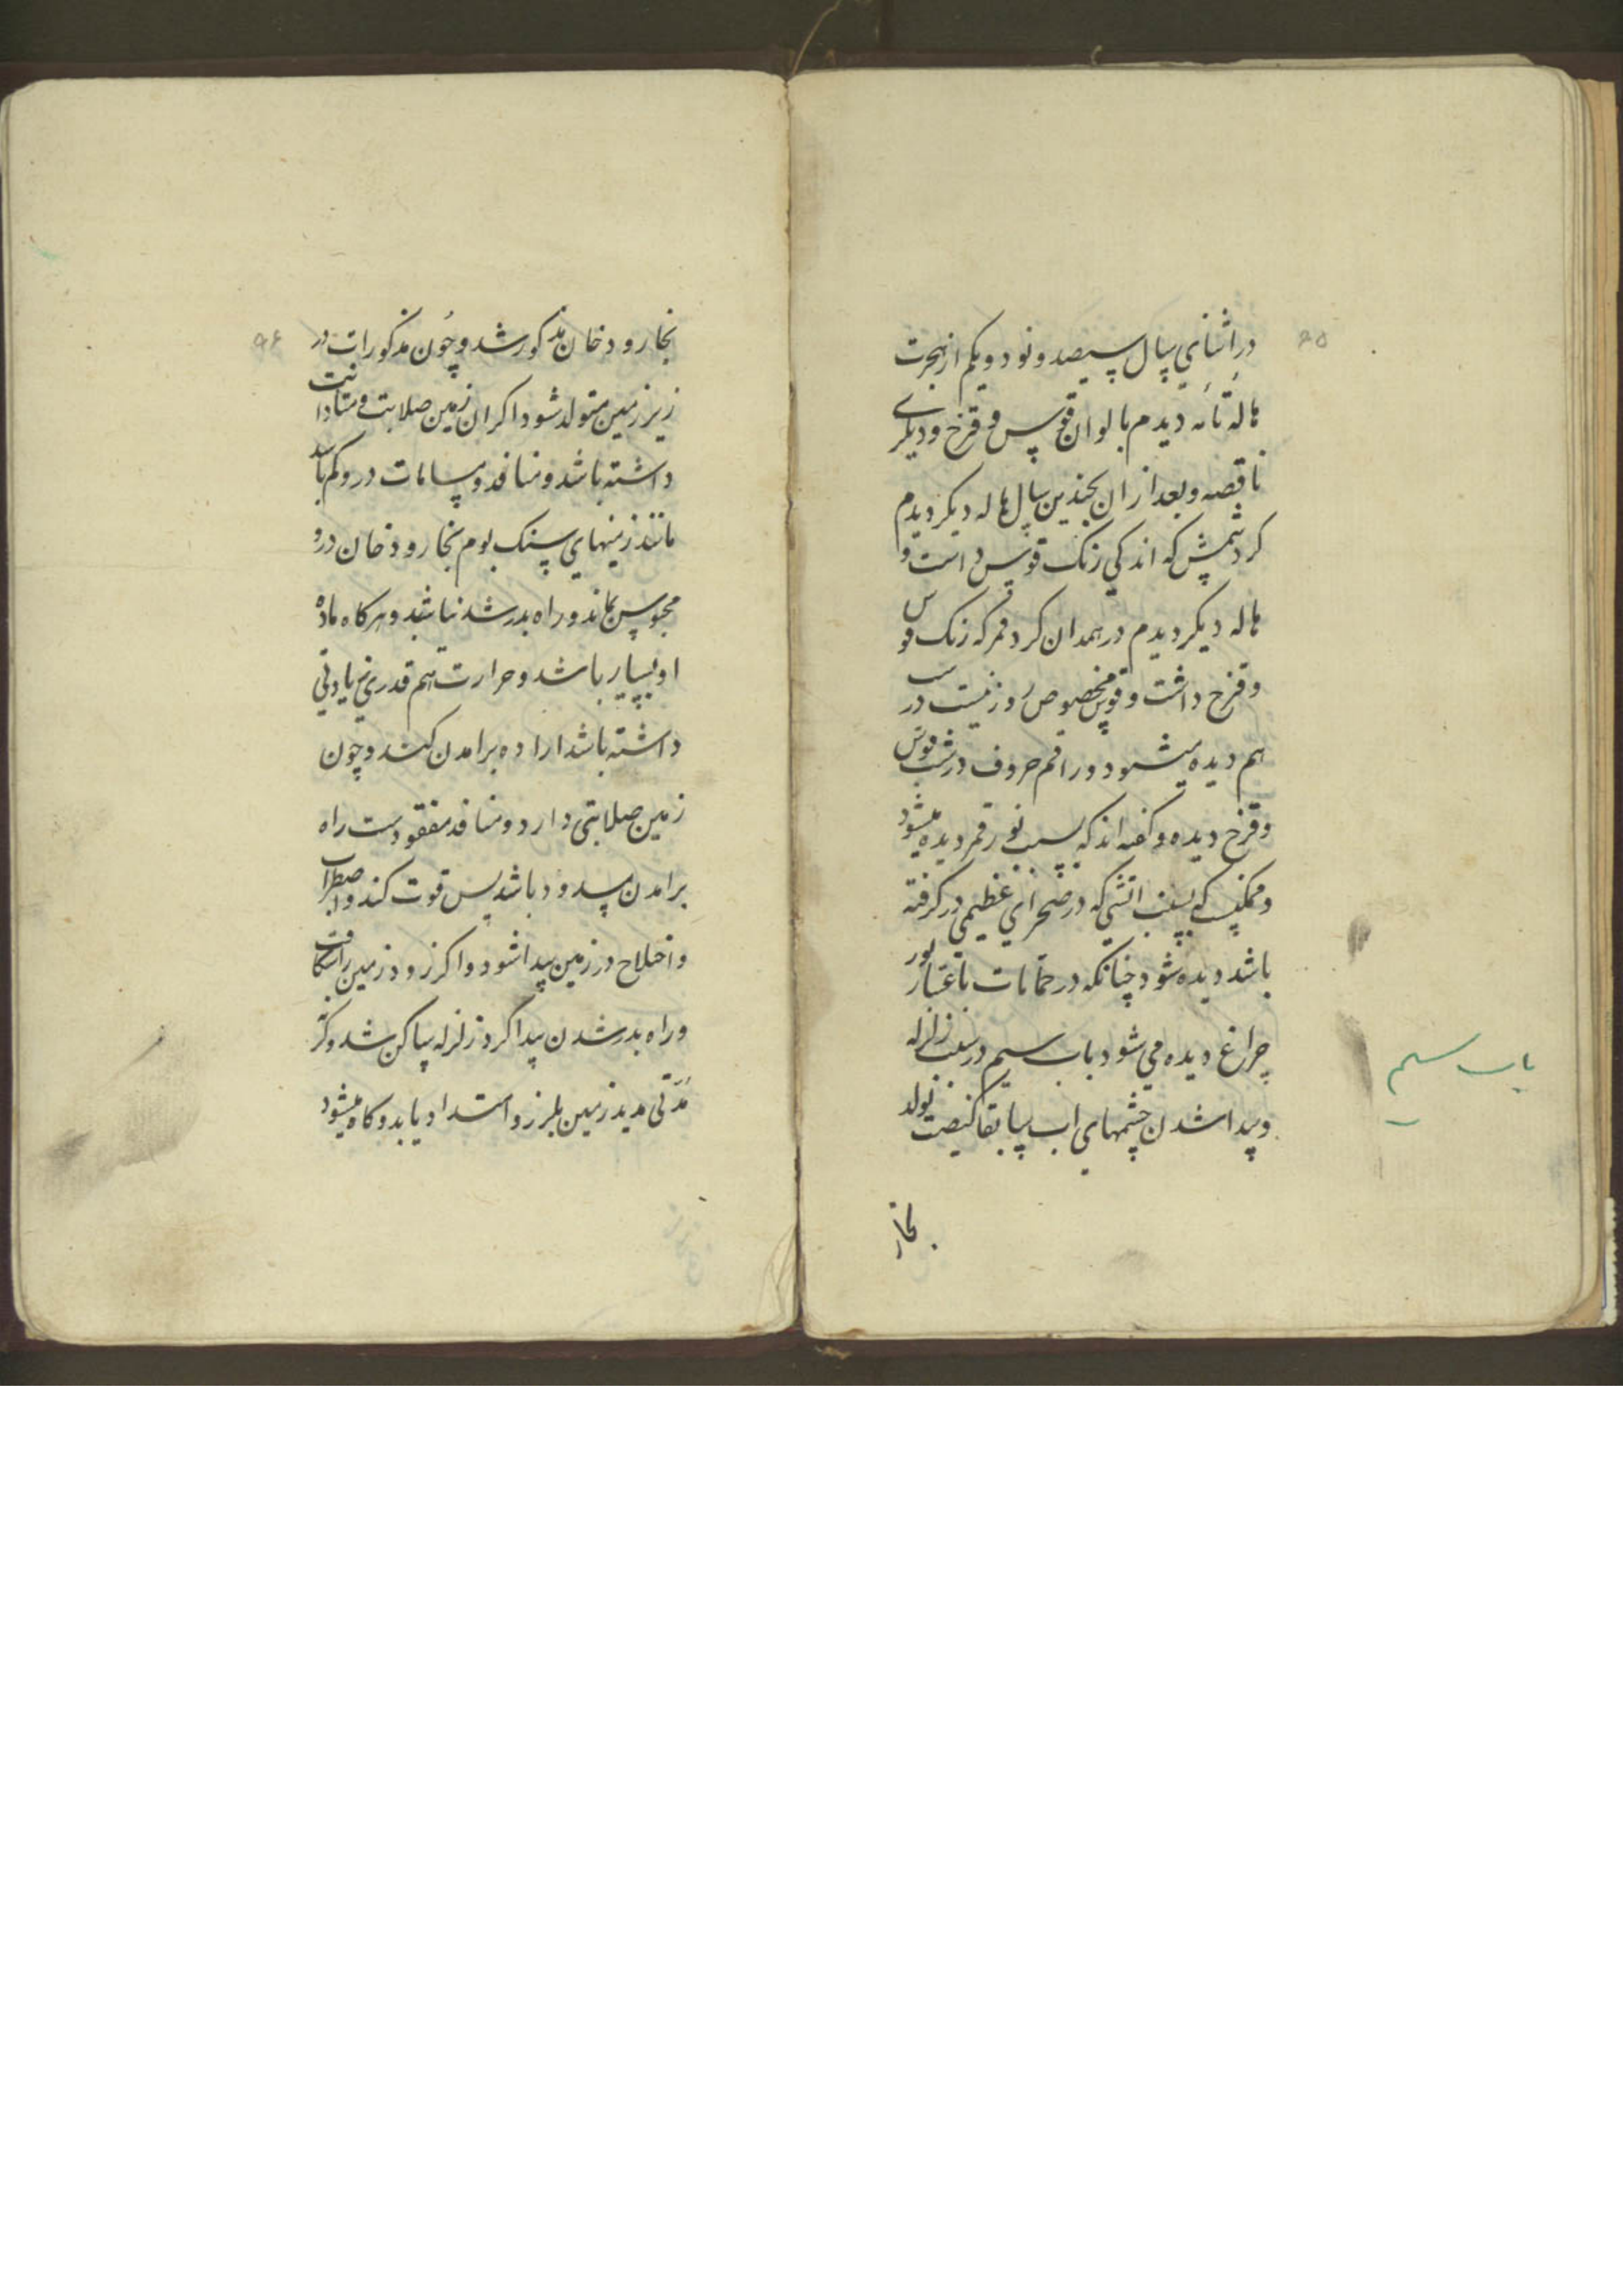 ۹۵
در اثنای سال سیصد و نود و یکم از هجرت
هاله تامه دیدم بالوان قوس و قزح و دیگری
ناقصه و بعد از ان بچندین سال هاله دیکر دیدم
کرد شمس که اندکی رنک قوس داشت و
هاله دیکر دیدم در همدان کرد قمر که رنک قوس
و قزح داشت و قوس مخصوص روز نیست در شب
هم دیده میشود و راقم حروف در شب قوس
و قزح دیده و کفته اند که بسبب نور قمر دیده میشود
و ممکنست که بسبب اتشی که در صحرای عظیمی در کرفته
باشد دیده شود چنانکه در حمامات باعتبار نور
چراغ دیده می شود باب سیم در سبب زلزله
و پیدا شدن چشمهای اب سابقا کیفیت تولد
بخار
باب سیم
۹۶
بخار و دخان مذکور شد و چون مذکورات در
زیر زمین متولد شود اکر ان زمین صلابت و متانت
داشته باشد و منافذ و مسامات در و کم باشد
مانند زمینهای سنک بوم بخار و دخان درو
محبوس بماند و راه بدر شد نباشد و هرکاه ماده
او بسیار باشد و حرارت هم قدری زیادتی
داشته باشد اراده برامدن کند و چون
زمین صلابتی دارد و منافذ مفقودست راه
برامدن مسدود باشد پس قوت کند و اضطراب
و اختلاج در زمین پیدا شود و اکر زود زمین را شکافت
و راه بدر شدن پیدا کرد زلزله ساکن شد و کر
مدتی مدید زمین بلرزد و امتداد یابد و کاه میشود